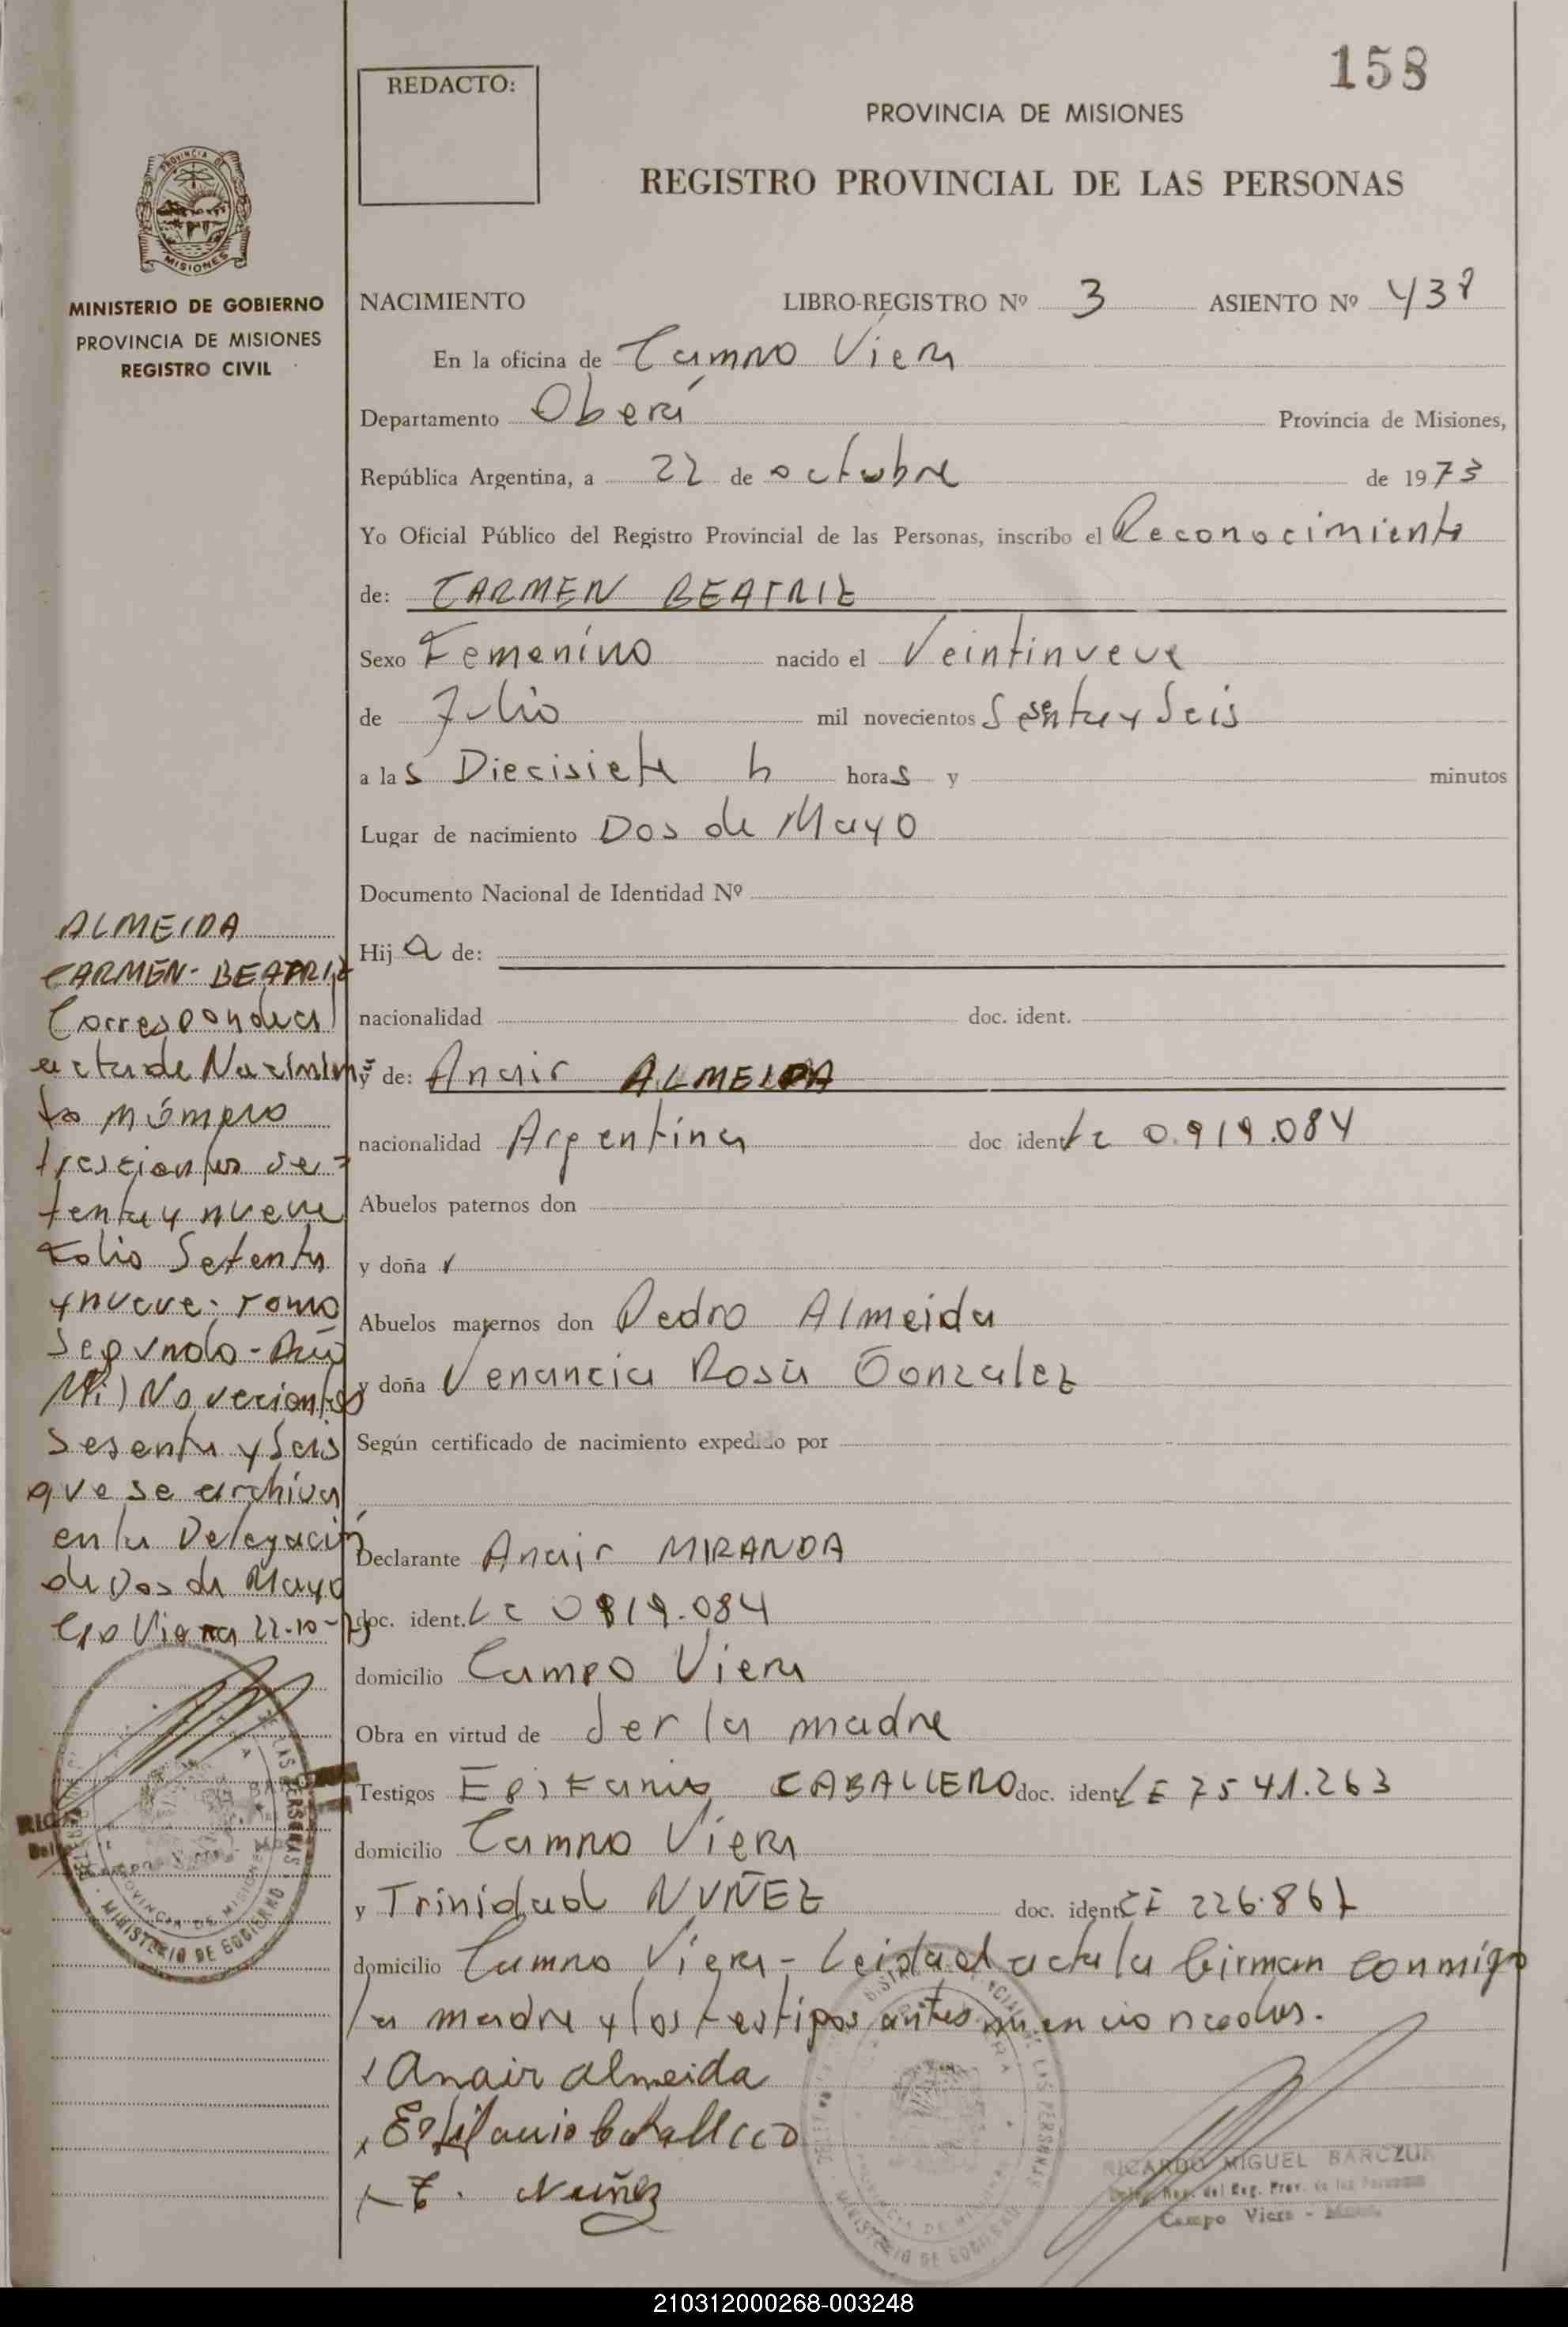 158
REDACTO:
PROVINCIA DE MISIONES
REGISTRO PROVINCIAL DE LAS PERSONAS
MISIONES
MINISTERIO DE GOBIERNO
PROVINCIA DE MISIONES
REGISTRO CIVIL
NACIMIENTO LIBRO-REGISTRO Nº 3 ASIENTO Nº
En la oficina de Campo Viera
Departamento Oberá Provincia de Misiones,
República Argentina, a 22 de octubre de 1973
Yo Oficial Público del Registro Provincial de las Personas, inscribo el Reconocimiento
de: CARMEN BEATRIZ
Sexo Femenino nacido el Veintinueve
de Julio mil novecientos Sesenta y Seis
a las Diecisiete h horas y minutos
Lugar de nacimiento Dos de Mayo
Documento Nacional de Identidad Nº
Hija de:
nacionalidad doc. ident.
y de: Anair ALMEIDA
nacionalidad Argentina doc ident Lc 0.919.084
Abuelos paternos don
y doña
Abuelos maternos don Pedro Almeida
y doña Venancia Rosa Gonzalez
Según certificado de nacimiento expedido por
Declarante Anair MIRANDA
doc. ident. Lc 0919.084
domicilio Campo Viera
Obra en virtud de Ser la madre
Testigos Epifanio CABALLERO doc. ident LE 7541.263
domicilio Campo Viera
y Trinidad NUÑEZ doc. ident
domicilio Campo Viera - Leida el acta la firman conmigo
la madre y los testigos antes mencionados.
Anair almeida
Epifanio Caballero
T. Nuñez
RICARDO MIGUEL BARCZUK
Deleg. Rep. del Reg. Prov. de las Personas
Campo Viera - Mnes.
ALMEIDA
CARMEN-BEATRIZ
Corresponde al
acta de Nacimien=
to número
trescientos se=
tenta y nueve
Folio Setenta
y nueve - Tomo
Segundo - Año
Mil Novecientos
Sesenta y Seis
que se archiva
en la Delegación
de Dos de Mayo
Cpo Viera 22-10-73
MINISTERIO DE GOBIERNO
PROVINCIA DE MISIONES
210312000268-003248